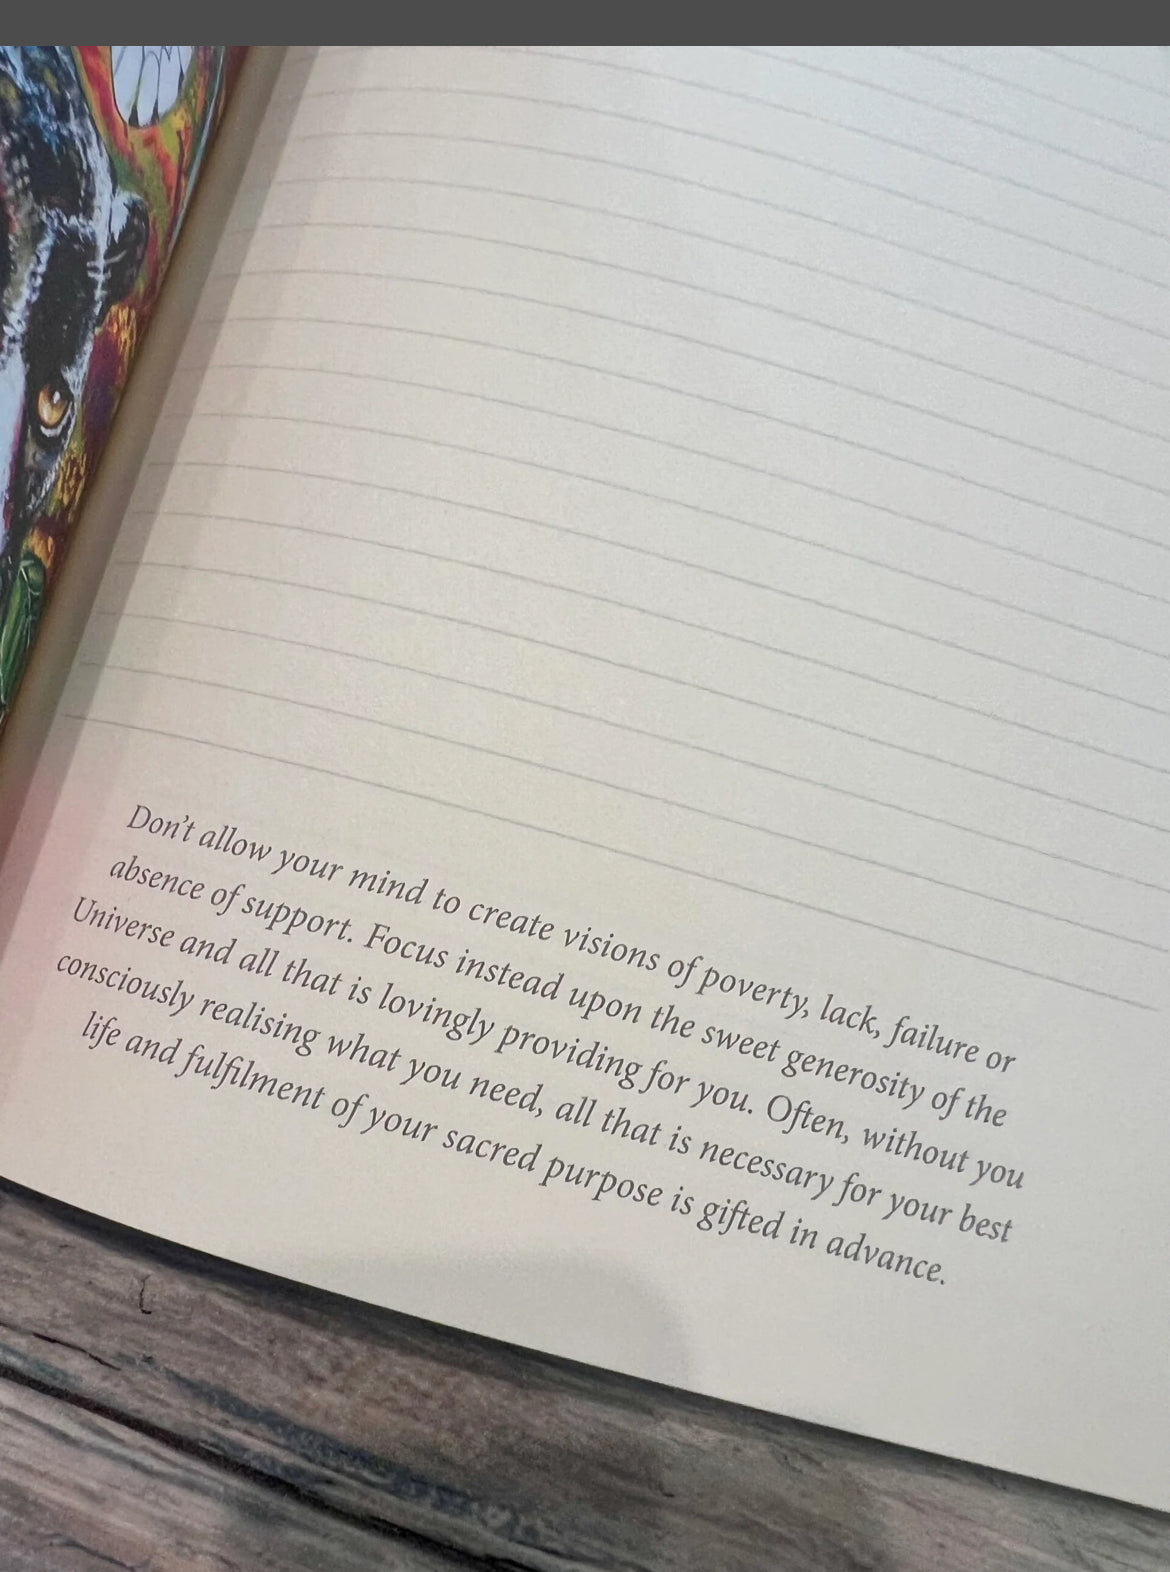 Don't allow your mind to create visions of poverty, lack, failure or
absence of support. Focus instead upon the sweet generosity of the
Universe and all that is lovingly providing for you. Often, without you
consciously realising what you need, all that is necessary for your best
life and fulfilment of your sacred purpose is gifted in advance.